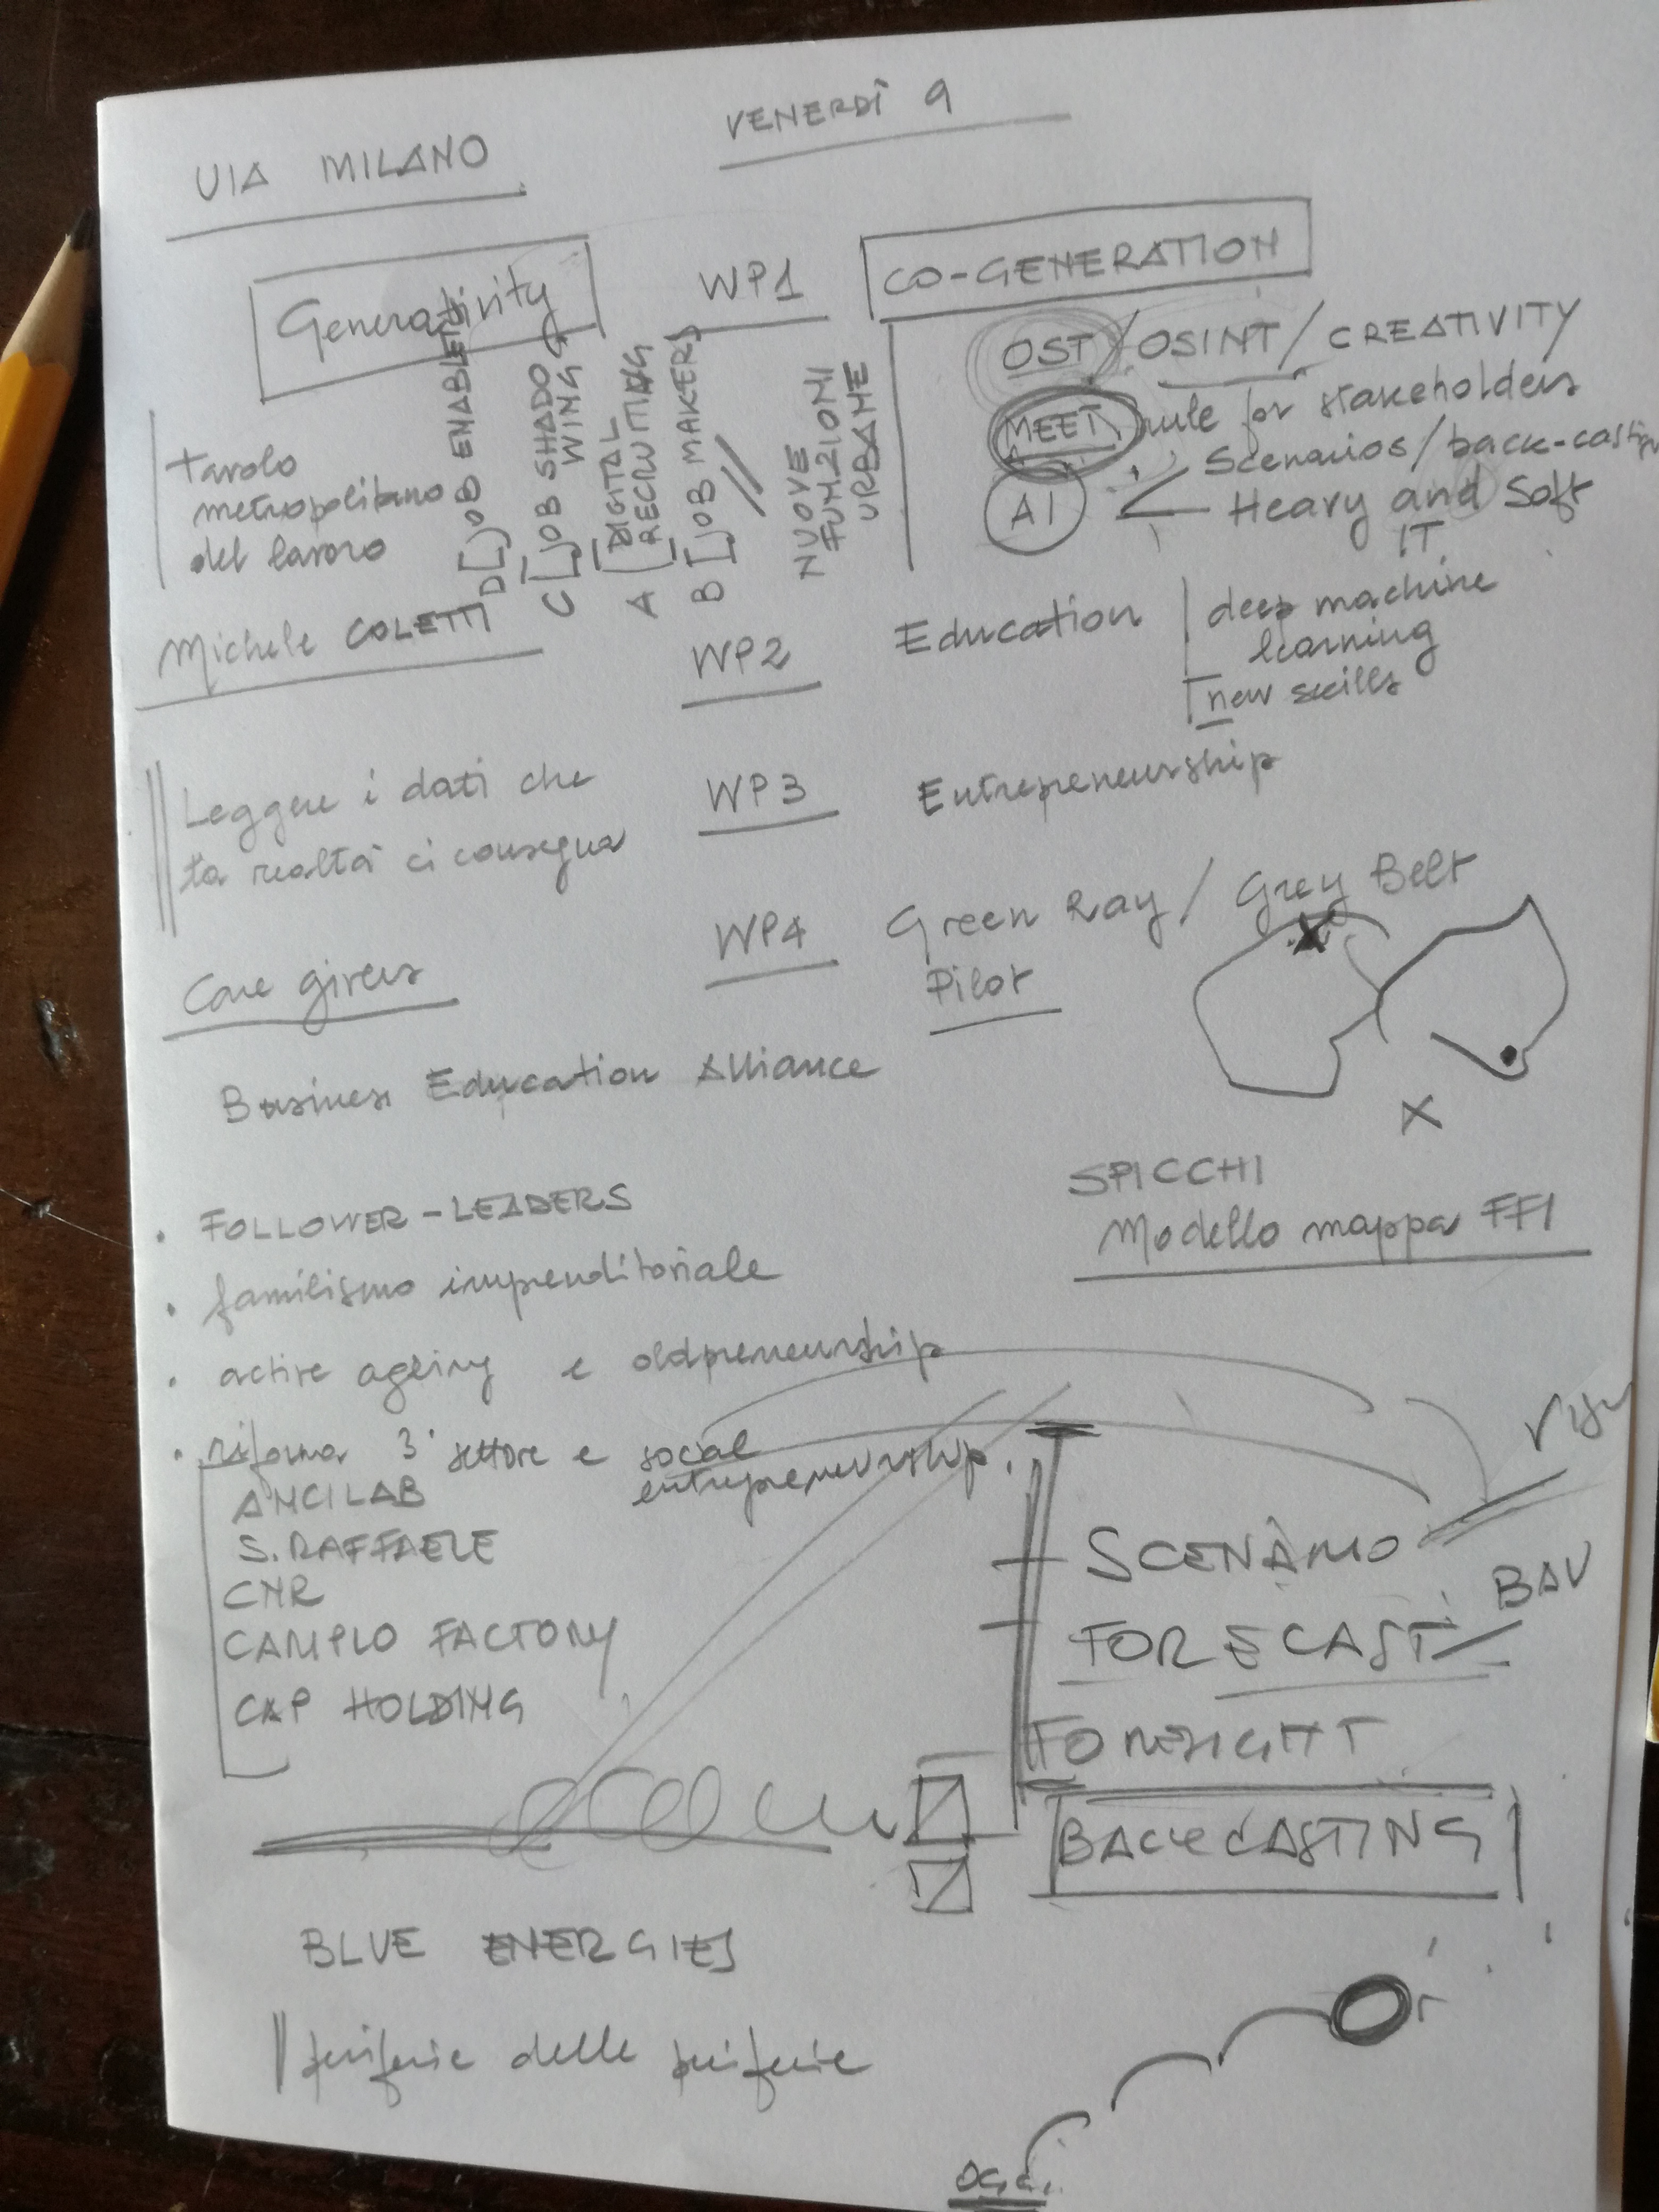 VIA MILANO
VENERDÌ 9
Generativity
WP1
CO-GENERATION
OST / OSINT / CREATIVITY
MEET rule for stakeholders
Scenarios / back-casting
AI
Heavy and Soft
IT
tavolo
metropolitano
del lavoro
D [JOB ENABLER]
C [JOB SHADO
WING]
A [DIGITAL
RECRUITING]
B [JOB MAKER]
NUOVE
FUNZIONI
URBANE
Michele COLETTI
WP2
Education
deep machine
learning
new skills
Leggere i dati che
la realtà ci consegna
WP3
Entrepreneurship
WP4
Green Ray / Grey Belt
Pilot
Care givers
Business Education Alliance
X
SPICCHI
Modello mappa FFI
• FOLLOWER - LEADERS
• familismo imprenditoriale
• active ageing e oldpreneurship
• riforma 3° settore e social
entrepreneurship
ANCILAB
S. RAFFAELE
CNR
CAMPLO FACTORY
CAP HOLDING
SCENARIO
BAU
FORECAST
FORESIGHT
BACKCASTING
BLUE ENERGIES
periferie delle periferie
OGGI